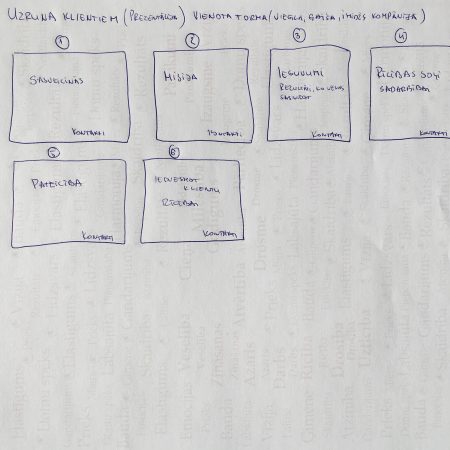 UZRUNA KLIENTIEM (PREZENTĀCIJA) VIENOTA FORMA (VIEGLA, GAIŠA,
①
SASVEICINĀS
KONTAKTI
②
MISIJA
KONTAKTI
③
IEGUVUMI
REZULTĀTI, KO VĒLAS
SASNIEGT
KONTAKTI
④
RĪCĪBAS SOĻI
SADARBĪBAI
KONTAKTI
⑤
PATEICĪBA
KONTAKTI
⑥
IEDVESMOT
KLIENTU
RĪCĪBAI
KONTAKTI